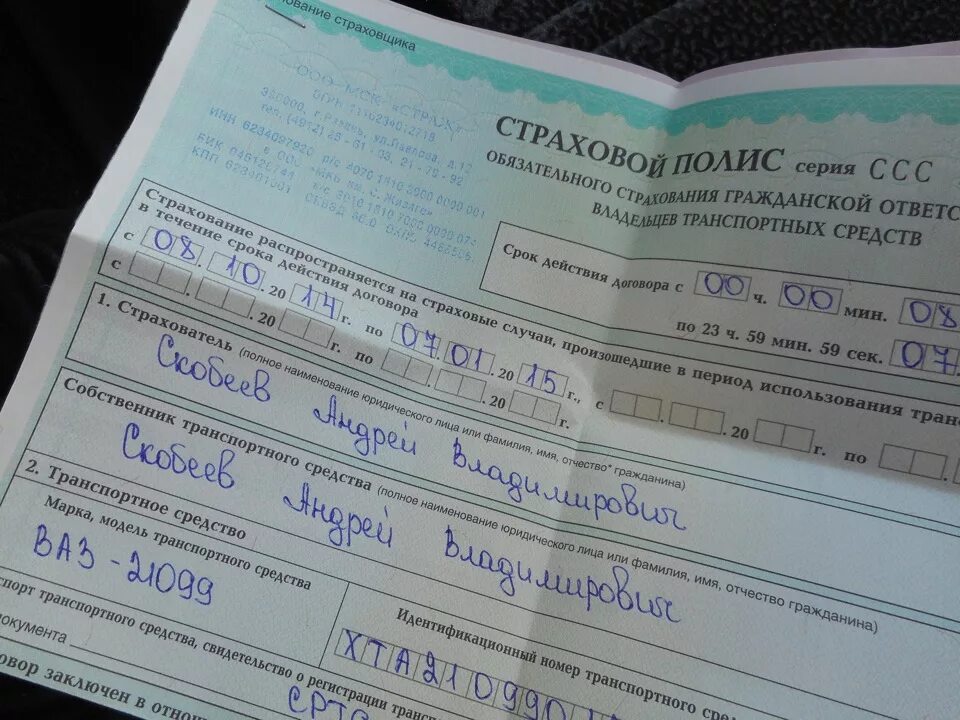 ование страховщика
ООО МСК «СТРАЖ»
ОГРН 1026234012719
390000, г. Рязань, ул. Павлова, д. 12
ИНН 6234097920
БИК 046126744
СТРАХОВОЙ ПОЛИС серия ССС
ОБЯЗАТЕЛЬНОГО СТРАХОВАНИЯ ГРАЖДАНСКОЙ ОТВЕТС
ВЛАДЕЛЬЦЕВ ТРАНСПОРТНЫХ СРЕДСТВ
Срок действия договора с 00 ч. 00 мин. 08
по 23 ч. 59 мин. 59 сек. 07
Страхование распространяется на страховые случаи, произошедшие в период использования тран
в течение срока действия договора
с 08. 10. 20 14 г. по 07 01. 20 15 г., с . . 20 г. по
с . . 20 г. по . . 20 г.
1. Страхователь Скобеев Андрей Владимирович
(полное наименование юридического лица или фамилия, имя, отчество* гражданина)
Собственник транспортного средства Скобеев Андрей Владимирович
(полное наименование юридического лица или фамилия, имя, отчество гражданина)
2. Транспортное средство
Марка, модель транспортного средства
ВАЗ-21099
Идентификационный номер транспортного средства
ХТА210990
спорт транспортного средства, свидетельство о регистрации
документа
СРТС
овор заключен в отнош